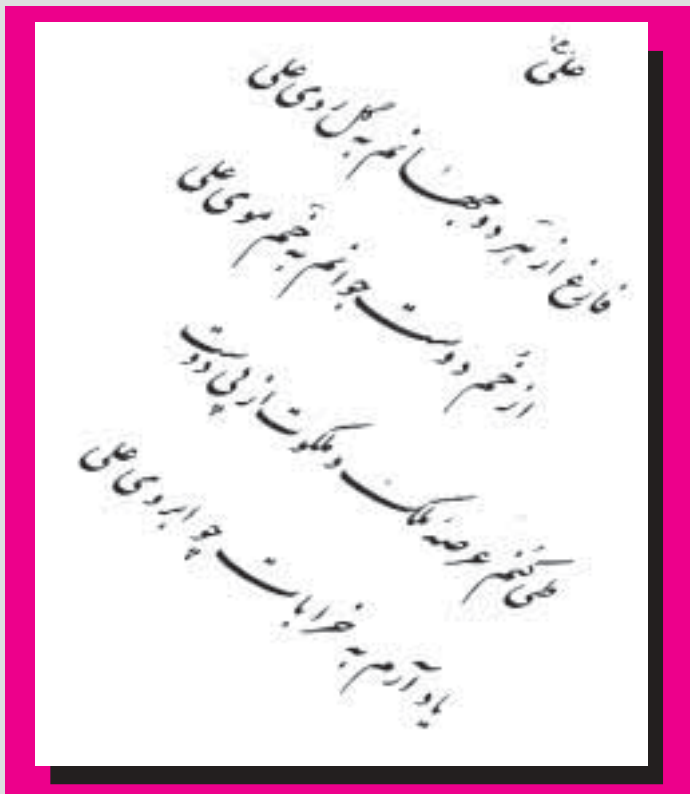 علی (ع)
فارغ از هَر دو جهانم به گل روی علی
از خُم دوست جوانم به خَم موی علی
طی کُنم عرصهٔ ملک و ملکوت از پی دوست
یاد آرم به خرابات چو ابروی علی